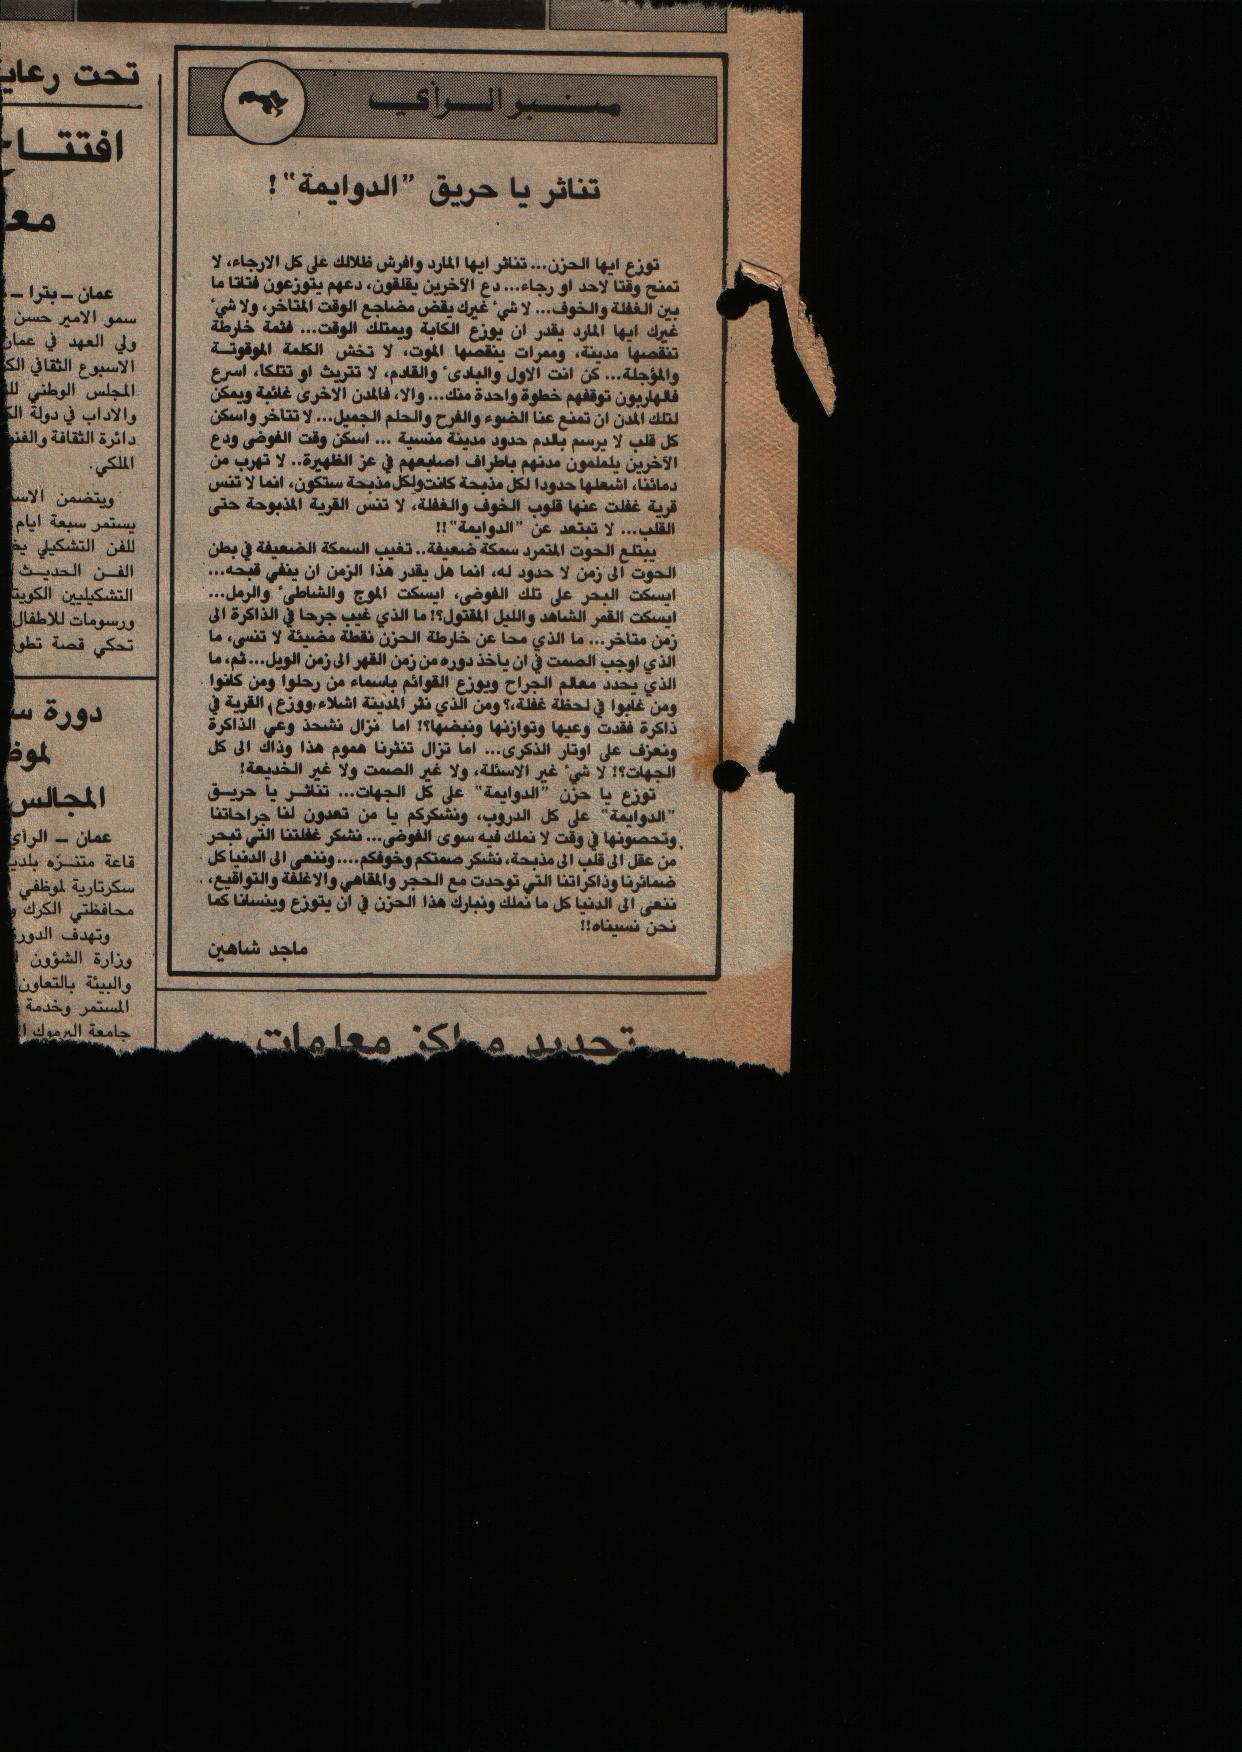 منبر الرأي
تناثر يا حريق "الدوايمة"!
توزع ايها الحزن... تناثر ايها المارد وافرش ظلالك على كل الارجاء، لا
تمنح وقتا لاحد او رجاء... دع الآخرين يقلقون، دعهم يتوزعون فتاتا ما
بين الغفلة والخوف... لا شيء غيرك يقض مضاجع الوقت المتاخر، ولا شيء
غيرك ايها المارد يقدر ان يوزع الكابة ويمتلك الوقت... فثمة خارطة
تنقصها مدينة، وممرات ينقصها الموت، لا تخش الكلمة الموقوتة
والمؤجلة... كن انت الاول والبادىء والقادم، لا تتريث او تتلكا، اسرع
فالهاربون توقفهم خطوة واحدة منك... والا، فالمدن الاخرى غائبة ويمكن
لتلك المدن ان تمنع عنا الضوء والفرح والحلم الجميل... لا تتاخر واسكن
كل قلب لا يرسم بالدم حدود مدينة منسية ... اسكن وقت الفوضى ودع
الآخرين يلملمون مدنهم باطراف اصابعهم في عز الظهيرة.. لا تهرب من
دمائنا، اشعلها حدودا لكل مذبحة كانت ولكل مذبحة ستكون، انما لا تنس
قرية غفلت عنها قلوب الخوف والغفلة، لا تنس القرية المذبوحة حتى
القلب... لا تبتعد عن "الدوايمة"!!
يبتلع الحوت المتمرد سمكة ضعيفة.. تغيب السمكة الضعيفة في بطن
الحوت الى زمن لا حدود له، انما هل يقدر هذا الزمن ان ينفي قبحه...
ايسكت البحر على تلك الفوضى، ايسكت الموج والشاطىء والرمل...
ايسكت القمر الشاهد والليل المقتول؟! ما الذي غيب جرحا في الذاكرة الى
زمن متأخر... ما الذي محا عن خارطة الحزن نقطة مضيئة لا تنسى، ما
الذي اوجب الصمت في ان يأخذ دوره من زمن القهر الى زمن الويل... ثم، ما
الذي يحدد معالم الجراح ويوزع القوائم باسماء من رحلوا ومن كانوا
ومن غابوا في لحظة غفلة،؟ ومن الذي نثر المدينة اشلاء، ووزع القرية في
ذاكرة فقدت وعيها وتوازنها ونبضها؟! اما نزال نشحذ وعي الذاكرة
ونعزف على اوتار الذكرى... اما تزال تنثرنا هموم هذا وذاك الى كل
الجهات؟! لا شيء غير الاسئلة، ولا غير الصمت ولا غير الخديعة!
توزع يا حزن "الدوايمة" على كل الجهات... تناثر يا حريق
"الدوايمة" على كل الدروب، ونشكركم يا من تعدون لنا جراحاتنا
وتحصونها في وقت لا نملك فيه سوى الفوضى... نشكر غفلتنا التي تبحر
من عقل الى قلب الى مذبحة، نشكر صمتكم وخوفكم.... وننعى الى الدنيا كل
ضمائرنا وذاكراتنا التي توحدت مع الحجر والمقاهي والاغلفة والتواقيع،
ننعى الى الدنيا كل ما نملك ونبارك هذا الحزن في ان يتوزع وينسانا كما
نحن نسيناه!!
ماجد شاهين
تحديد مراكز معلمات
تحت رعاية
افتتاح
معر
عمان ــ بترا ــ
سمو الامير حسن
ولي العهد في عمان
الاسبوع الثقافي
المجلس الوطني
والاداب في دولة
دائرة الثقافة والفنو
الملكي.
ويتضمن الاس
يستمر سبعة ايام
للفن التشكيلي
الفن الحديث
التشكيليين الكويت
ورسومات للاطفال
تحكي قصة تطور
دورة
لموظ
المجالس
عمان ــ الرأي
قاعة متنزه بلدي
سكرتارية لموظفي
محافظتي الكرك
وتهدف الدورة
وزارة الشؤون
والبيئة بالتعاون
المستمر وخدمة
جامعة اليرموك